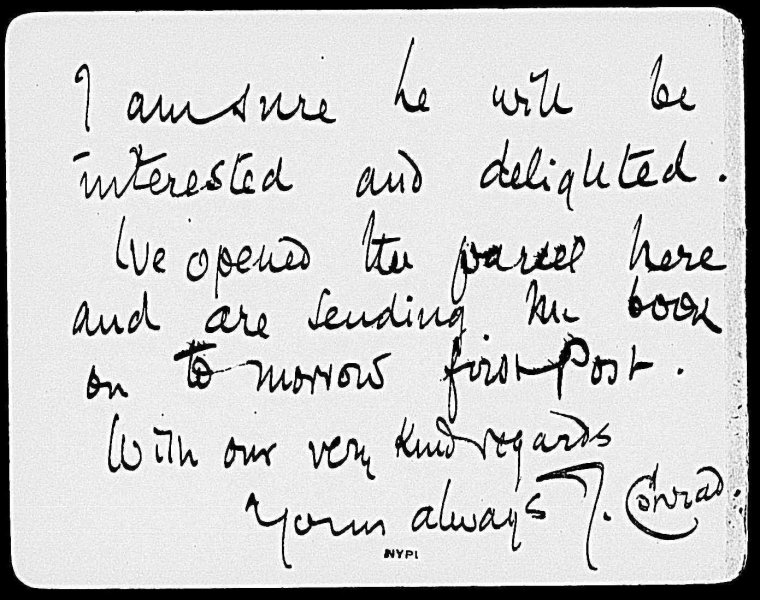 I am sure he will be
interested and delighted.
We opened the parcel here
and are sending the book
on to morrow first Post.
With our very kind regards
Yours always J. Conrad.
NYPL